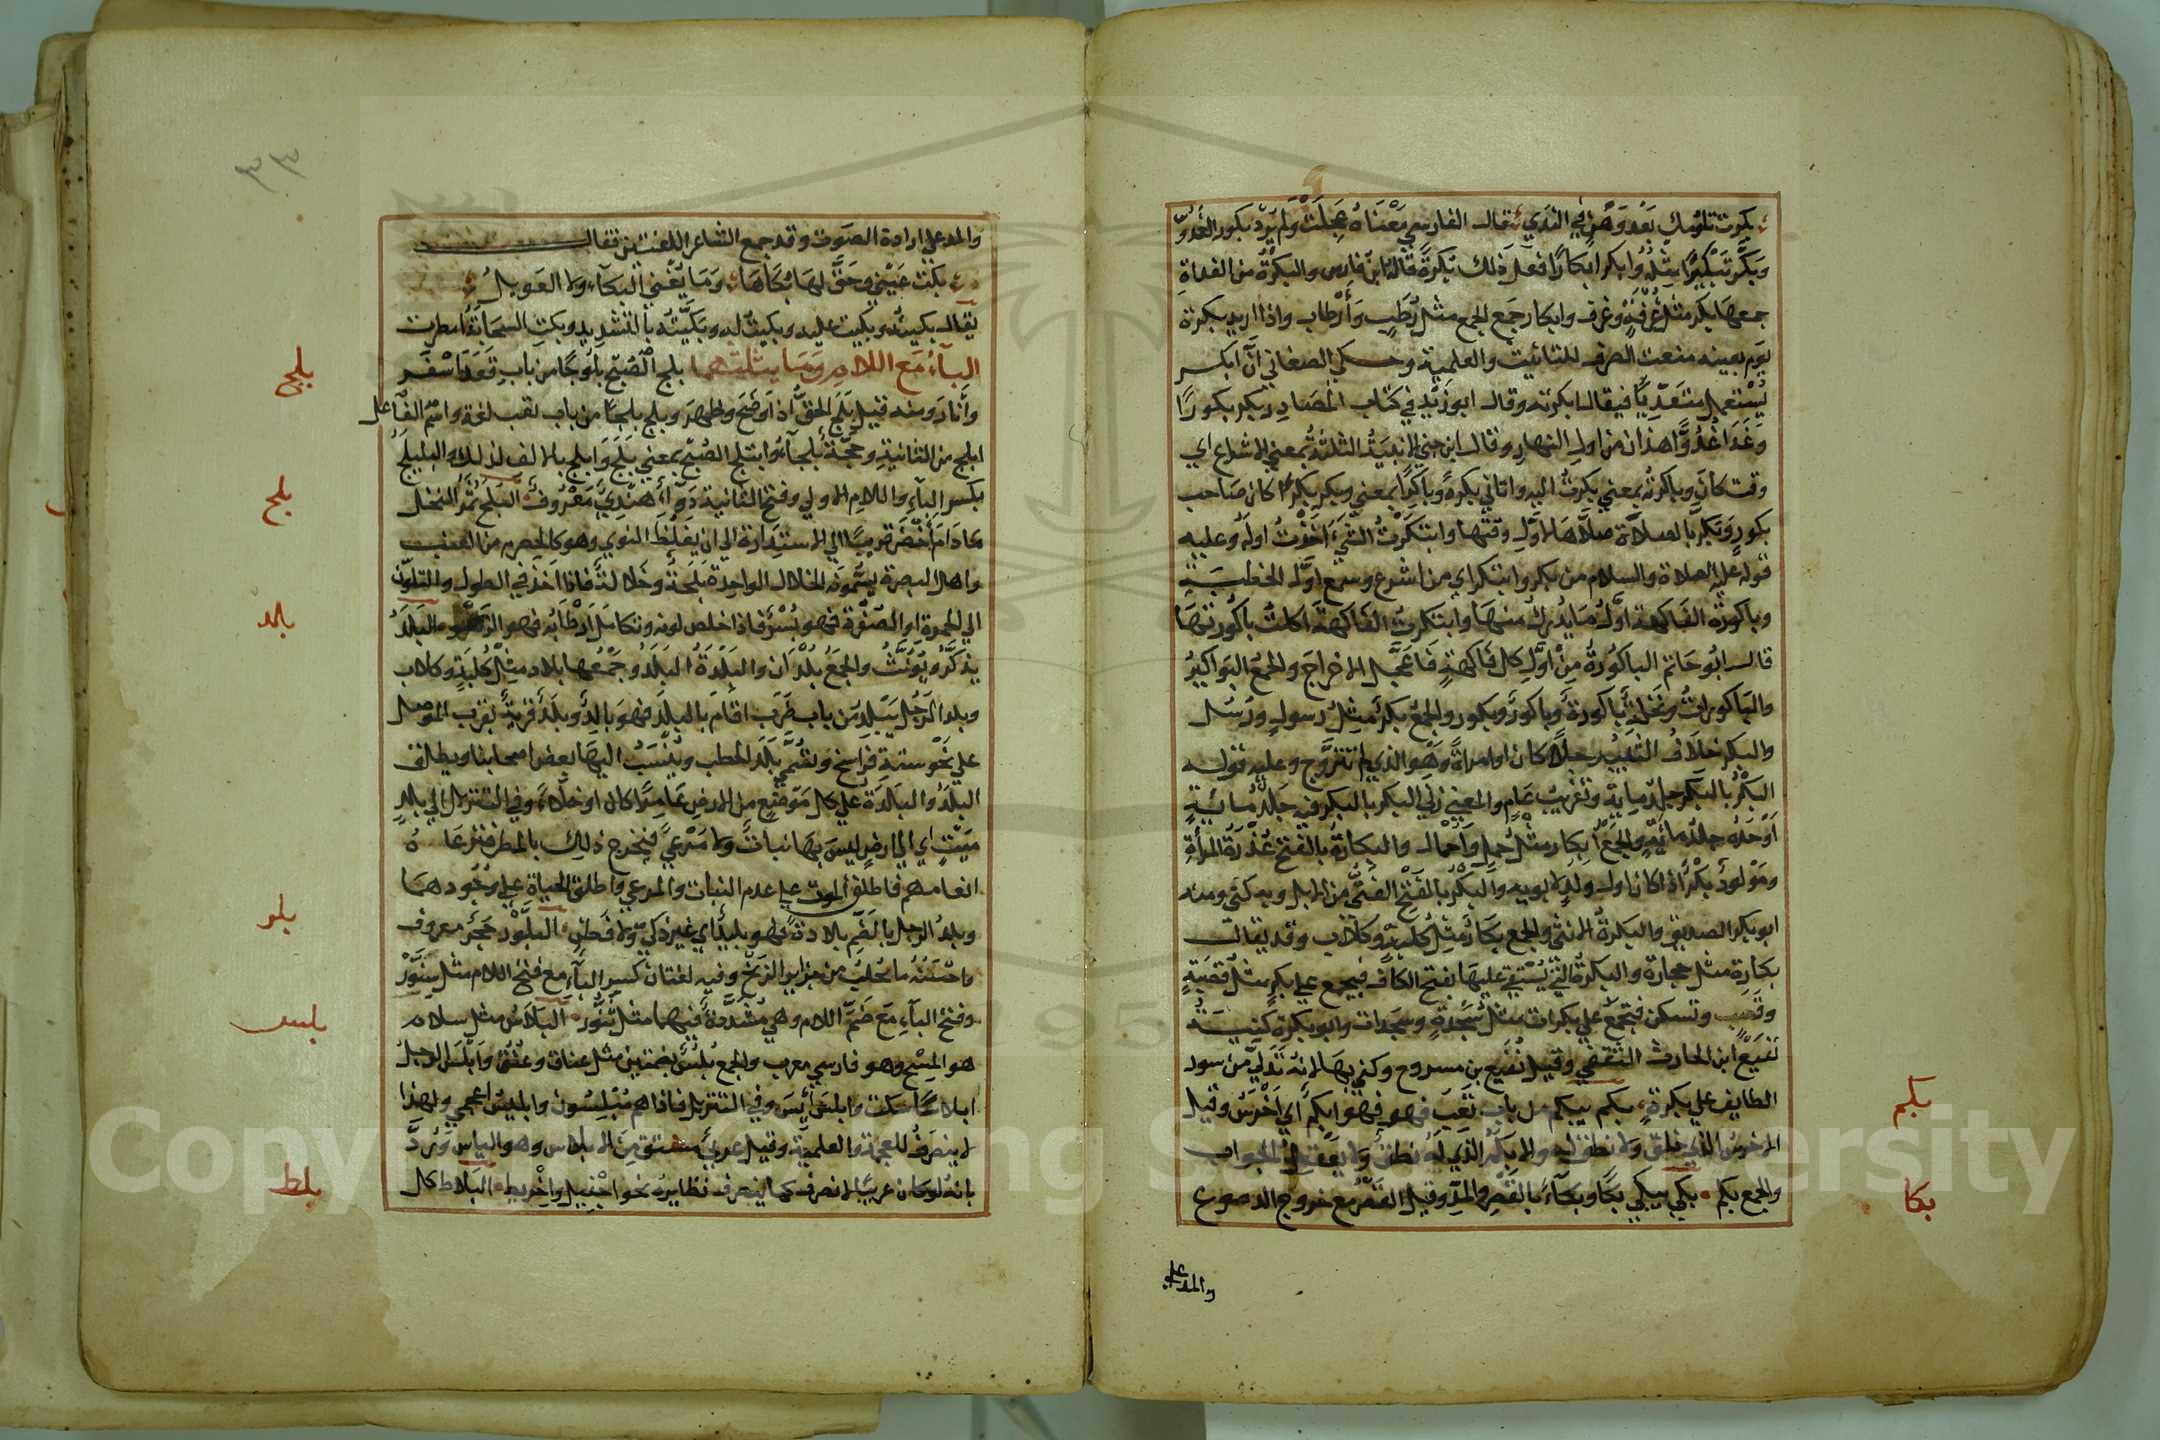 بكرت تلومك بعد وهن في الندي فقال الفارسي معناه عجلت ولم يرد بكور الغدو
وبكر تبكيرا مثله وابكر ابكارا فعل ذلك بكرة قاله ابن فارس والبكرة من الغداة
جمعها بكر مثل غرفة وغرف وابكار جمع الجمع مثل رطب وأرطاب واذا اريد بكرة
يوم بعينه منعت الصرف للتانيث والعلمية وحكي الصغاني أن ابكر
يستعمل متعديا فيقال ابكرته وقال ابو زيد في كتاب المصادر بكر بكورا
وغدا غدوا هذان من اول النهار وقال ابن جني الابنية الثلثة بمعني الاسراع اي
وقت كان وباكرته بمعني بكرت اليه واتاني بكرة وباكرا بمعني وبكر بكرا كان صاحب
بكور وبكر بالصلاة صلاها لاول وقتها وابتكرت الشيء اخذت اوله وعليه
قوله عليه الصلاة والسلام من بكر وابتكر اي من اسرع وسمع اول الخطبة
وباكورة الفاكهة اول ما يدرك منها وابتكرت الفاكهة اكلت باكورتها
قال ابو حاتم الباكورة من اول كل فاكهة ما عجل الاخراج والجمع البواكير
والباكورات ونخلة باكورة وباكور وبكور والجمع بكر مثل رسول ورسل
والبكر خلاف الثيب رجلا كان او امراة وهو الذي لم يتزوج وعليه قوله
البكر بالبكر جلد ماية وتغريب عام والمعني زني البكر بالبكر فيه جلد ماية
او حده جلد مائة والجمع ابكار مثل حمل واحمال والبكارة بالفتح عذرة المراة
ومولود بكر اذا كان اول ولد لابويه والبكر بالفتح الفتي من الابل وبه كني ومنه
ابو بكر الصديق والبكرة الانثي والجمع بكار مثل كلبة وكلاب وقد يقال
بكارة مثل حجارة والبكرة التي يستقي عليها بفتح الكاف فيجمع علي بكر مثل قصبة
وقصب وتسكن فتجمع علي بكرات مثل سجدة وسجدات وابو بكرة كنية
نفيع ابن الحارث الثقفي وقيل نفيع بن مسروح وكني بها لانه تدلي من سور
الطايف علي بكرة بكم يبكم من باب تعب فهو ابكم أي اخرس وقيل
الاخرس الذي خلق ولا نطق له والابكم الذي له نطق ولا يعقل الجواب
والجمع بكم بكي يبكي بكا وبكاء بالقصر والمد وقيل القصر مع خروج الدموع
بكم
بكا
والمد علي
٣٣
والمد علي ارادة الصوت وقد جمع الشاعر اللغتين فقال
بكت عيني وحق لها بكاها وما يغني البكاء ولا العويل
يقال بكيته وبكيت عليه وبكيت له وبكيته بالتشديد وبكت السحابة امطرت
الباء مع اللام وما يثلثهما بلج الصبح بلوجا من باب قعد اسفر
وأنار ومنه قيل بلج الحق اذا وضح وظهر وبلج بلجا من باب تعب لغة واسم الفاعل
ابلج من الثانية وحجة بلجاء وابتلج الصبح بمعني بلج وابلج بالالف كذلك والبليلج
بكسر الباء واللام الاولي وفتح الثانية دواء هندي معروف البلح ثمر النخل
ما دام أخضر قريبا الي الاستدارة الي ان يغلظ النوي وهو كالحصرم من العنب
واهل البصرة يسمونه الخلال الواحدة بلحة وخلالة فاذا اخذ في الطول والتلون
الي الحمرة او الصفرة فهو بسر فاذا خلص لونه وتكامل ارطابه فهو الزهو البلد
يذكر ويؤنث والجمع بلدان والبلدة البلد وجمعها بلاد مثل كلبة وكلاب
وبلد الرجل يبلد من باب ضرب اقام بالبلد فهو بالد وبلد قرية بقرب الموصل
علي نحو ستة فراسخ وتسمي بلد الحطب وينسب اليها بعض اصحابنا ويطلق
البلد والبلدة علي كل موضع من الارض عامرا كان او خلاء وفي التنزيل الي بلد
ميت اي الي ارض ليس بها نبات ولا مرعي فيخرج ذلك بالمطر فترعاه
انعامهم فاطلق الموت علي عدم النبات والمرعي واطلق الحياة علي وجودهما
وبلد الرجل بالضم بلادة فهو بليد اي غير ذكي ولا فطن البلور حجر معروف
واحسنه ما يجلب من جزاير الزنج وفيه لغتان كسر الباء مع فتح اللام مثل سنور
وفتح الباء مع ضم اللام وهي مشددة فيهما مثل تنور البلاس مثل سلام
هو المسح وهو فارسي معرب والجمع بلس بضمتين مثل عناق وعنق وابلس الرجل
ابلاسا سكت وابلس أيس وفي التنزيل فاذا هم مبلسون وابليس اعجمي ولهذا
لا ينصرف للعجمة والعلمية وقيل عربي مشتق من الابلاس وهو الياس ورد
بانه لو كان عربيا لانصرف كما ينصرف نظايره نحو اجفيل واخريط البلاط كل
بلج
بلح
بلد
بلر
بلس
بلط
Copyright © King Saud University